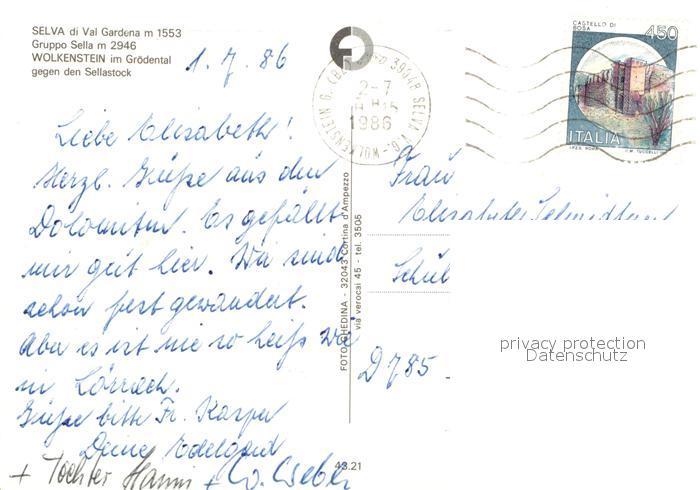 SELVA di Val Gardena m 1553
Gruppo Sella m 2946
WOLKENSTEIN im Grödental
gegen den Sellastock
1.7.86
CASTELLO DI
ROSA
450
ITALIA
39048 SELVA
WOLKENSTEIN G.
2-7
1986
Liebe Elisabeth!
Herzl. Grüße aus den
Dolomiten. Es gefällt
mir gut hier. Wir sind
schon fest gewandert.
Aber es ist nie so heiß wie
in Lörrach.
Grüße bitte Fr. Kasper
Deine Edelgard
+ Tochter Hanni +
FOTO GHEDINA - 32043 Cortina d'Ampezzo
via verocai 45 - tel. 3505
43.21
Frau
Schul
D 785
privacy protection
Datenschutz